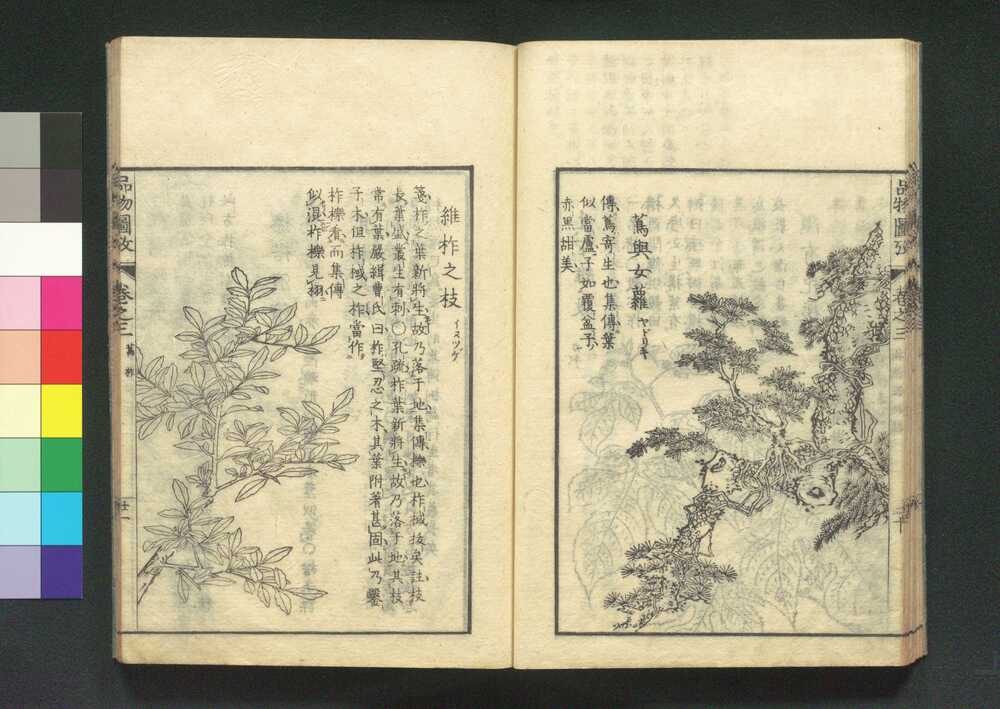 蔦與女蘿 ヤドリキ
傳蔦寄生也集傳葉
似當盧子如覆盆子
赤黒甜美
品物圖攷
卷之三
維柞之枝 イヌツゲ
箋柞之葉新將生故乃落于地集傳櫟也柞棫拔矣註枝
長葉盛叢生有刺〇孔疏柞葉新將生故乃落于地其枝
常有葉嚴緝曹氏曰柞堅忍之木其葉附著甚固此乃鑿
子木但柞棫之柞當作
柞櫟看而集傳
似混柞櫟見栩
品物圖攷
卷之三
蔦 柞
十一